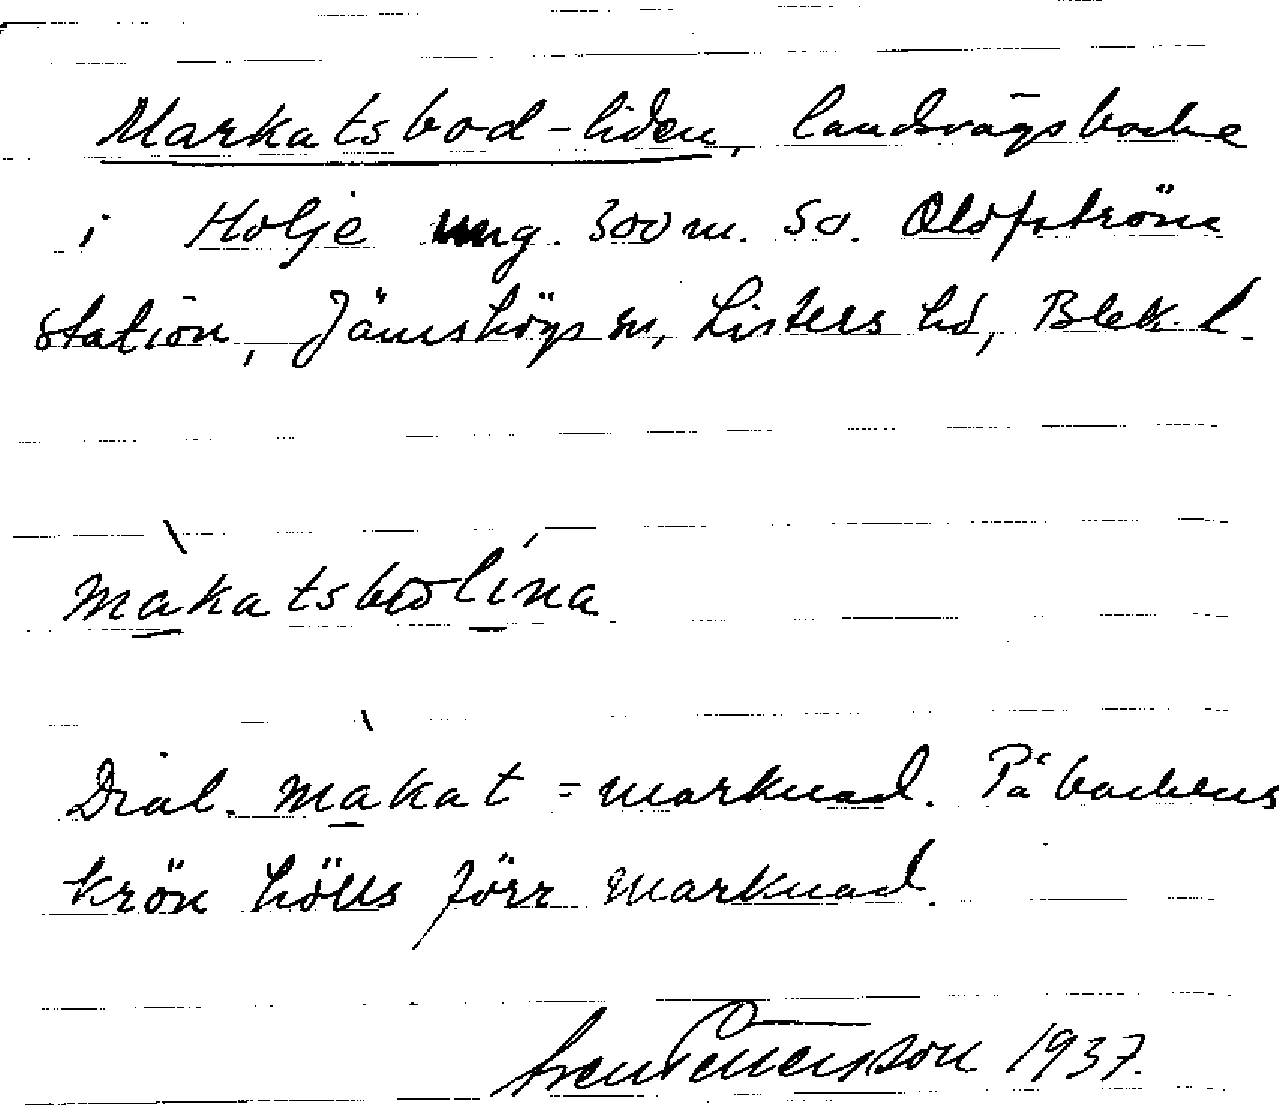 Markatsbod-liden, landsvägsbacke
i Holje ung. 300 m. So. Olofström
station, Jämshögs sn, Listers hd, Blek. l.
màkatsbolína
Dial. màkat = marknad. På backens
krön hölls förr marknad.
Sven Pettersson 1937.